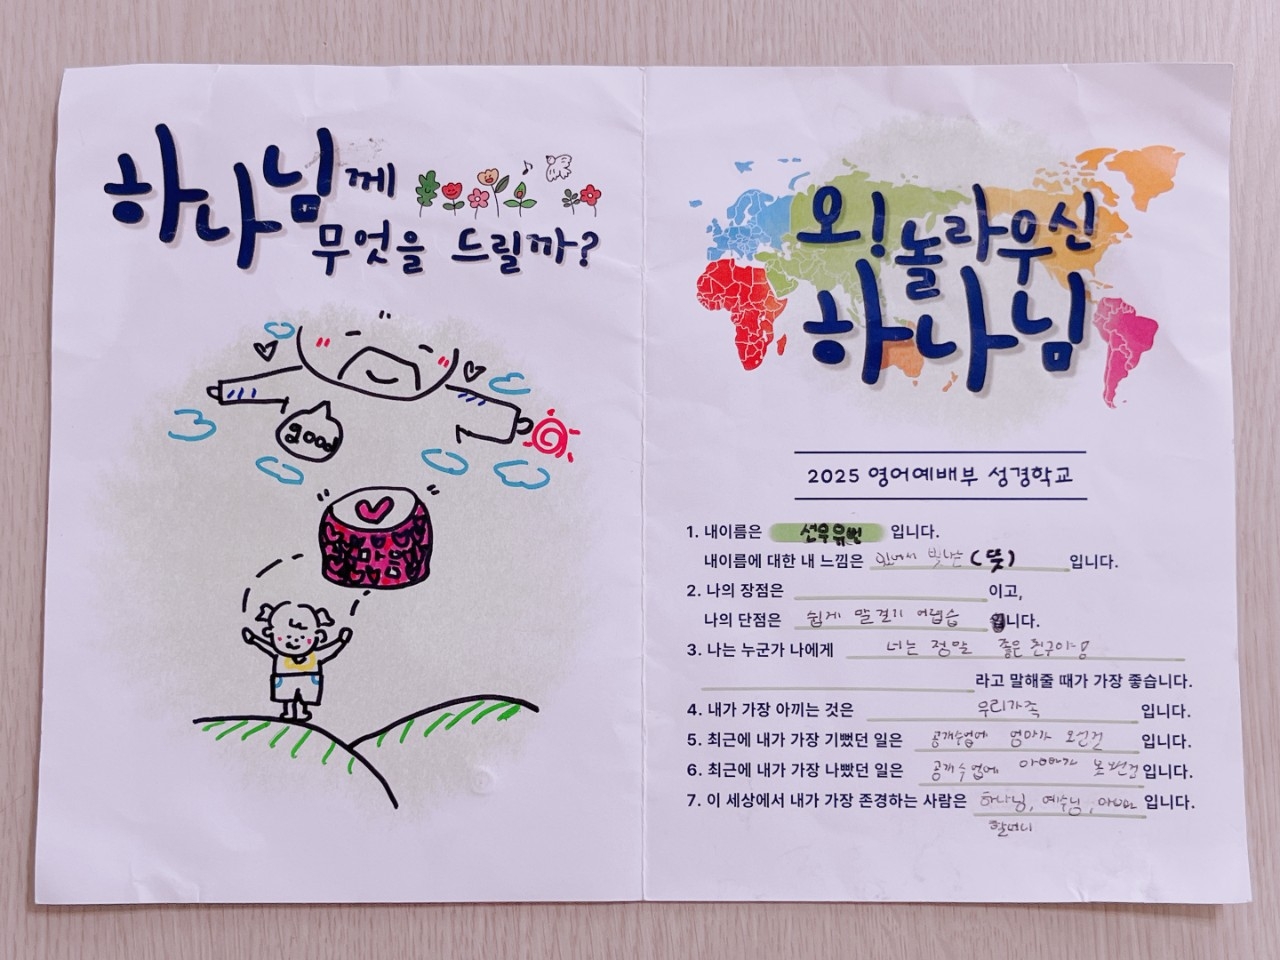 하나님께
무엇을 드릴까?
good
마음
오! 놀라우신
하나님
2025 영어예배부 성경학교
1. 내이름은 선우유빈 입니다.
내이름에 대한 내 느낌은 빛나는 (뜻) 입니다.
2. 나의 장점은 이고,
나의 단점은 쉽게 말 걸기 어렵습 니다.
3. 나는 누군가 나에게 너는 정말 좋은 친구야!
라고 말해줄 때가 가장 좋습니다.
4. 내가 가장 아끼는 것은 우리가족 입니다.
5. 최근에 내가 가장 기뻤던 일은 공개수업에 엄마가 오신건 입니다.
6. 최근에 내가 가장 나빴던 일은 공개수업에 아빠가 못 입니다.
7. 이 세상에서 내가 가장 존경하는 사람은 하나님, 예수님, 입니다.
할머니